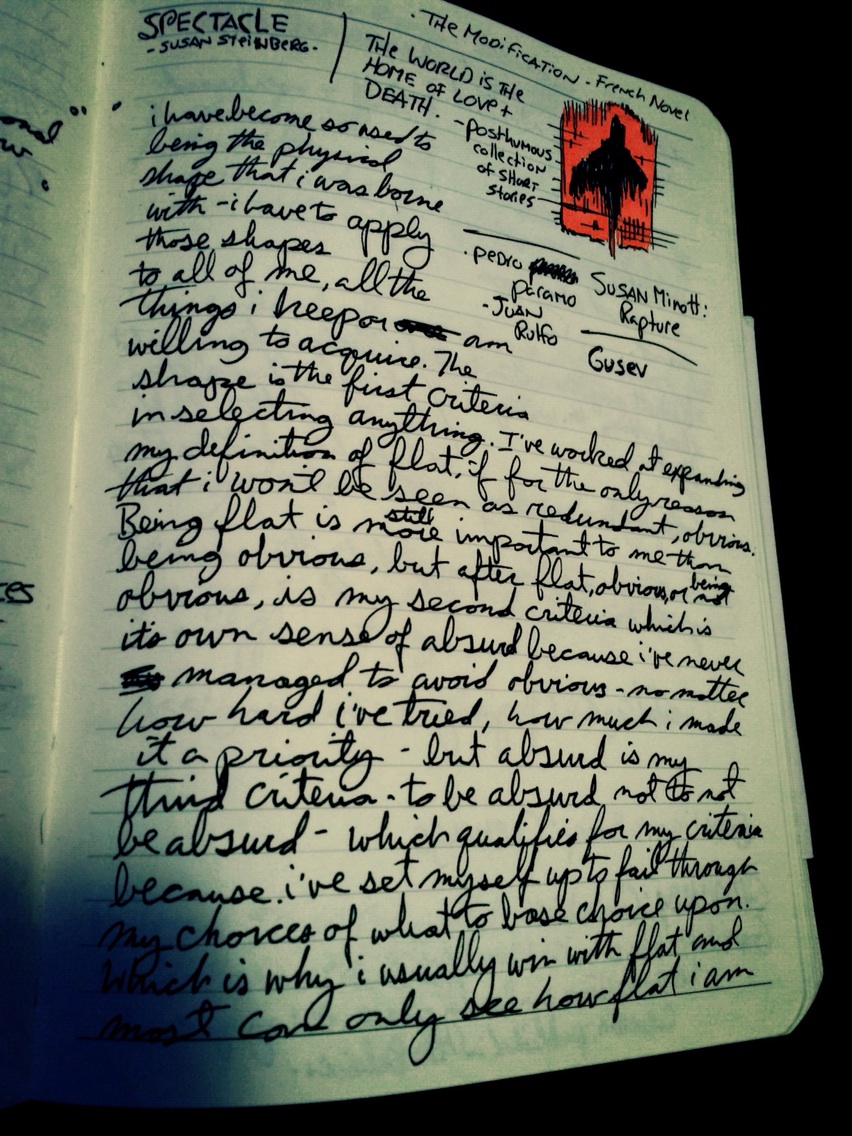 SPECTACLE
- SUSAN STEINBERG -
THE WORLD IS THE
HOME OF LOVE +
DEATH.
- POSTHUMOUS
collection
of SHORT
stories
· THE MODIFICATION - French Novel
· PEDRO
PARAMO
- JUAN
RULFO
SUSAN Minott:
Rapture
Gusev
i have become so used to
being the physical
shape that i was borne
with - i have to apply
those shapes
to all of me, all the
things i keep or am
willing to acquire. The
shape is the first criteria
in selecting anything. I've worked at expanding
my definition of flat, if for the only reason
that i won't be seen as redundant, obvious.
Being flat is still more important to me than
being obvious, but after flat, obvious, or being not
obvious, is my second criteria which is
it's own sense of absurd because i've never
managed to avoid obvious - no matter
how hard i've tried, how much i made
it a priority - but absurd is my
third criteria - to be absurd not to not
be absurd - which qualifies for my criteria
because i've set myself up to fail through
my choices of what to base choice upon.
Which is why i usually win with flat and
most can only see how flat i am
ces